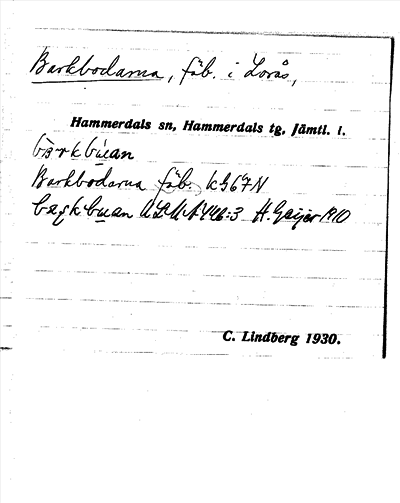 Barkbodarna, fäb. i Lorås,
Hammerdals sn, Hammerdals tg, Jämtl. l.
bàrkbúan
Barkbodarna fäb. kG67N
barkbuan ULMA 446:3 H. Geijer 1910
C. Lindberg 1930.